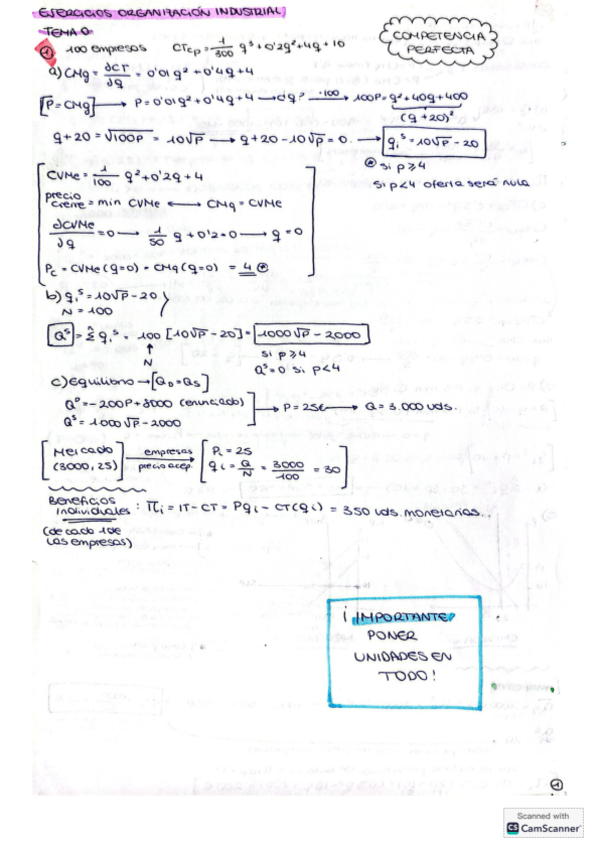 EJERCICIOS ORGANIZACIÓN INDUSTRIAL
TEMA 0
① 100 empresas CTcp = 1/300 q³ + 0'2q² + 4q + 10
COMPETENCIA PERFECTA
a) CMg = ∂CT/∂q = 0'01q² + 0'4q + 4
[P = CMg] → P = 0'01q² + 0'4q + 4 → q? —·100→ 100P = q² + 40q + 400
(q + 20)²
q + 20 = √100P = 10√P → q + 20 - 10√P = 0. → qiˢ = 10√P - 20
⊛ si p ≥ 4
si p < 4 oferta será nula
CVMe = 1/100 q² + 0'2q + 4
precio cierre = min CVMe ↔ CMg = CVMe
∂CVMe/∂q = 0 → 1/50 q + 0'2 = 0 → q = 0
Pc = CVMe (q=0) = CMg (q=0) = 4 ⊛
b) qiˢ = 10√P - 20
N = 100
Qˢ = Σ qiˢ = 100 [10√P - 20] = 1000√P - 2000
↑
N
si p ≥ 4
Qˢ = 0 si p < 4
c) Equilibrio → [QD = QS]
Qᴰ = -200P + 8000 (enunciado)
Qˢ = 1000√P - 2000
→ P = 25€ → Q = 3.000 uds.
[Mercado (3000, 25)] empresas precio acep. → [Pi = 25
qi = Q/N = 3000/100 = 30]
Beneficios Individuales : Πi = IT - CT = Pqi - CT(qi) = 350 uds. monetarias..
(de cada 1 de las empresas)
¡ IMPORTANTE
PONER
UNIDADES EN
TODO !
1
Scanned with
CS CamScanner